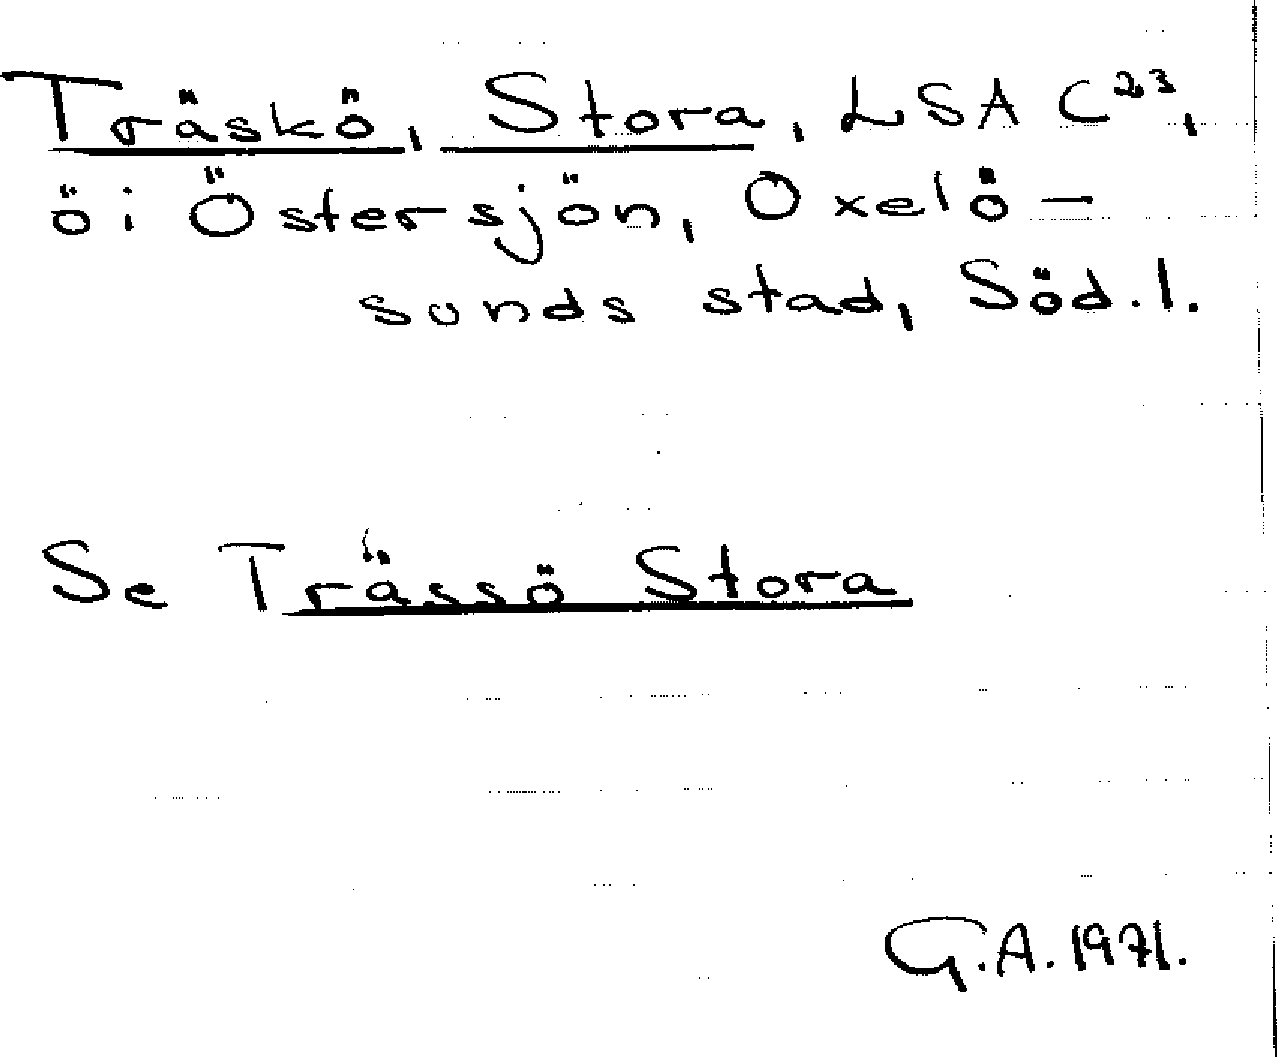 Träskö, Stora, LSA C²³,
ö i Östersjön, Oxelö-
sunds stad, Söd.l.
Se Trässö Stora
G.A. 1971.